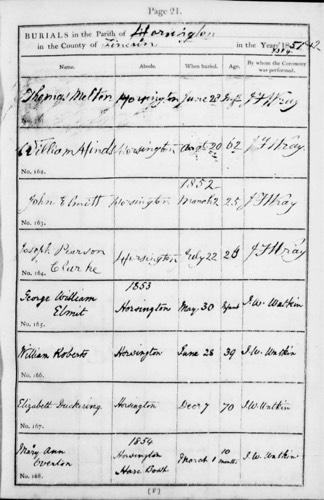 Page 21.
BURIALS in the Parish of Horsington
in the County of Lincoln in the Year 1851
Name. Abode. When buried. Age. By whom the Ceremony was performed.
Thomas Melton Horsington June 23 J F Wray
No. 161.
William Hinds Horsington Augst 20 62 J F Wray.
No. 162.
1852
John Elmitt Horsington March 2 25 J F Wray
No. 163.
Joseph Pearson
Clarke Horsington July 22 J F Wray
No. 164.
1853
George William
Elmit Horsington May 30 J. W. Watkin
No. 165.
William Roberts Horsington June 28 39 J. W. Watkin
No. 166.
Elizabeth Duckering Horsington Decr 7 70 J. W. Watkin
No. 167.
1854
Mary Ann
Overton Horsington March 1 10 months J. W. Watkin
No. 168.